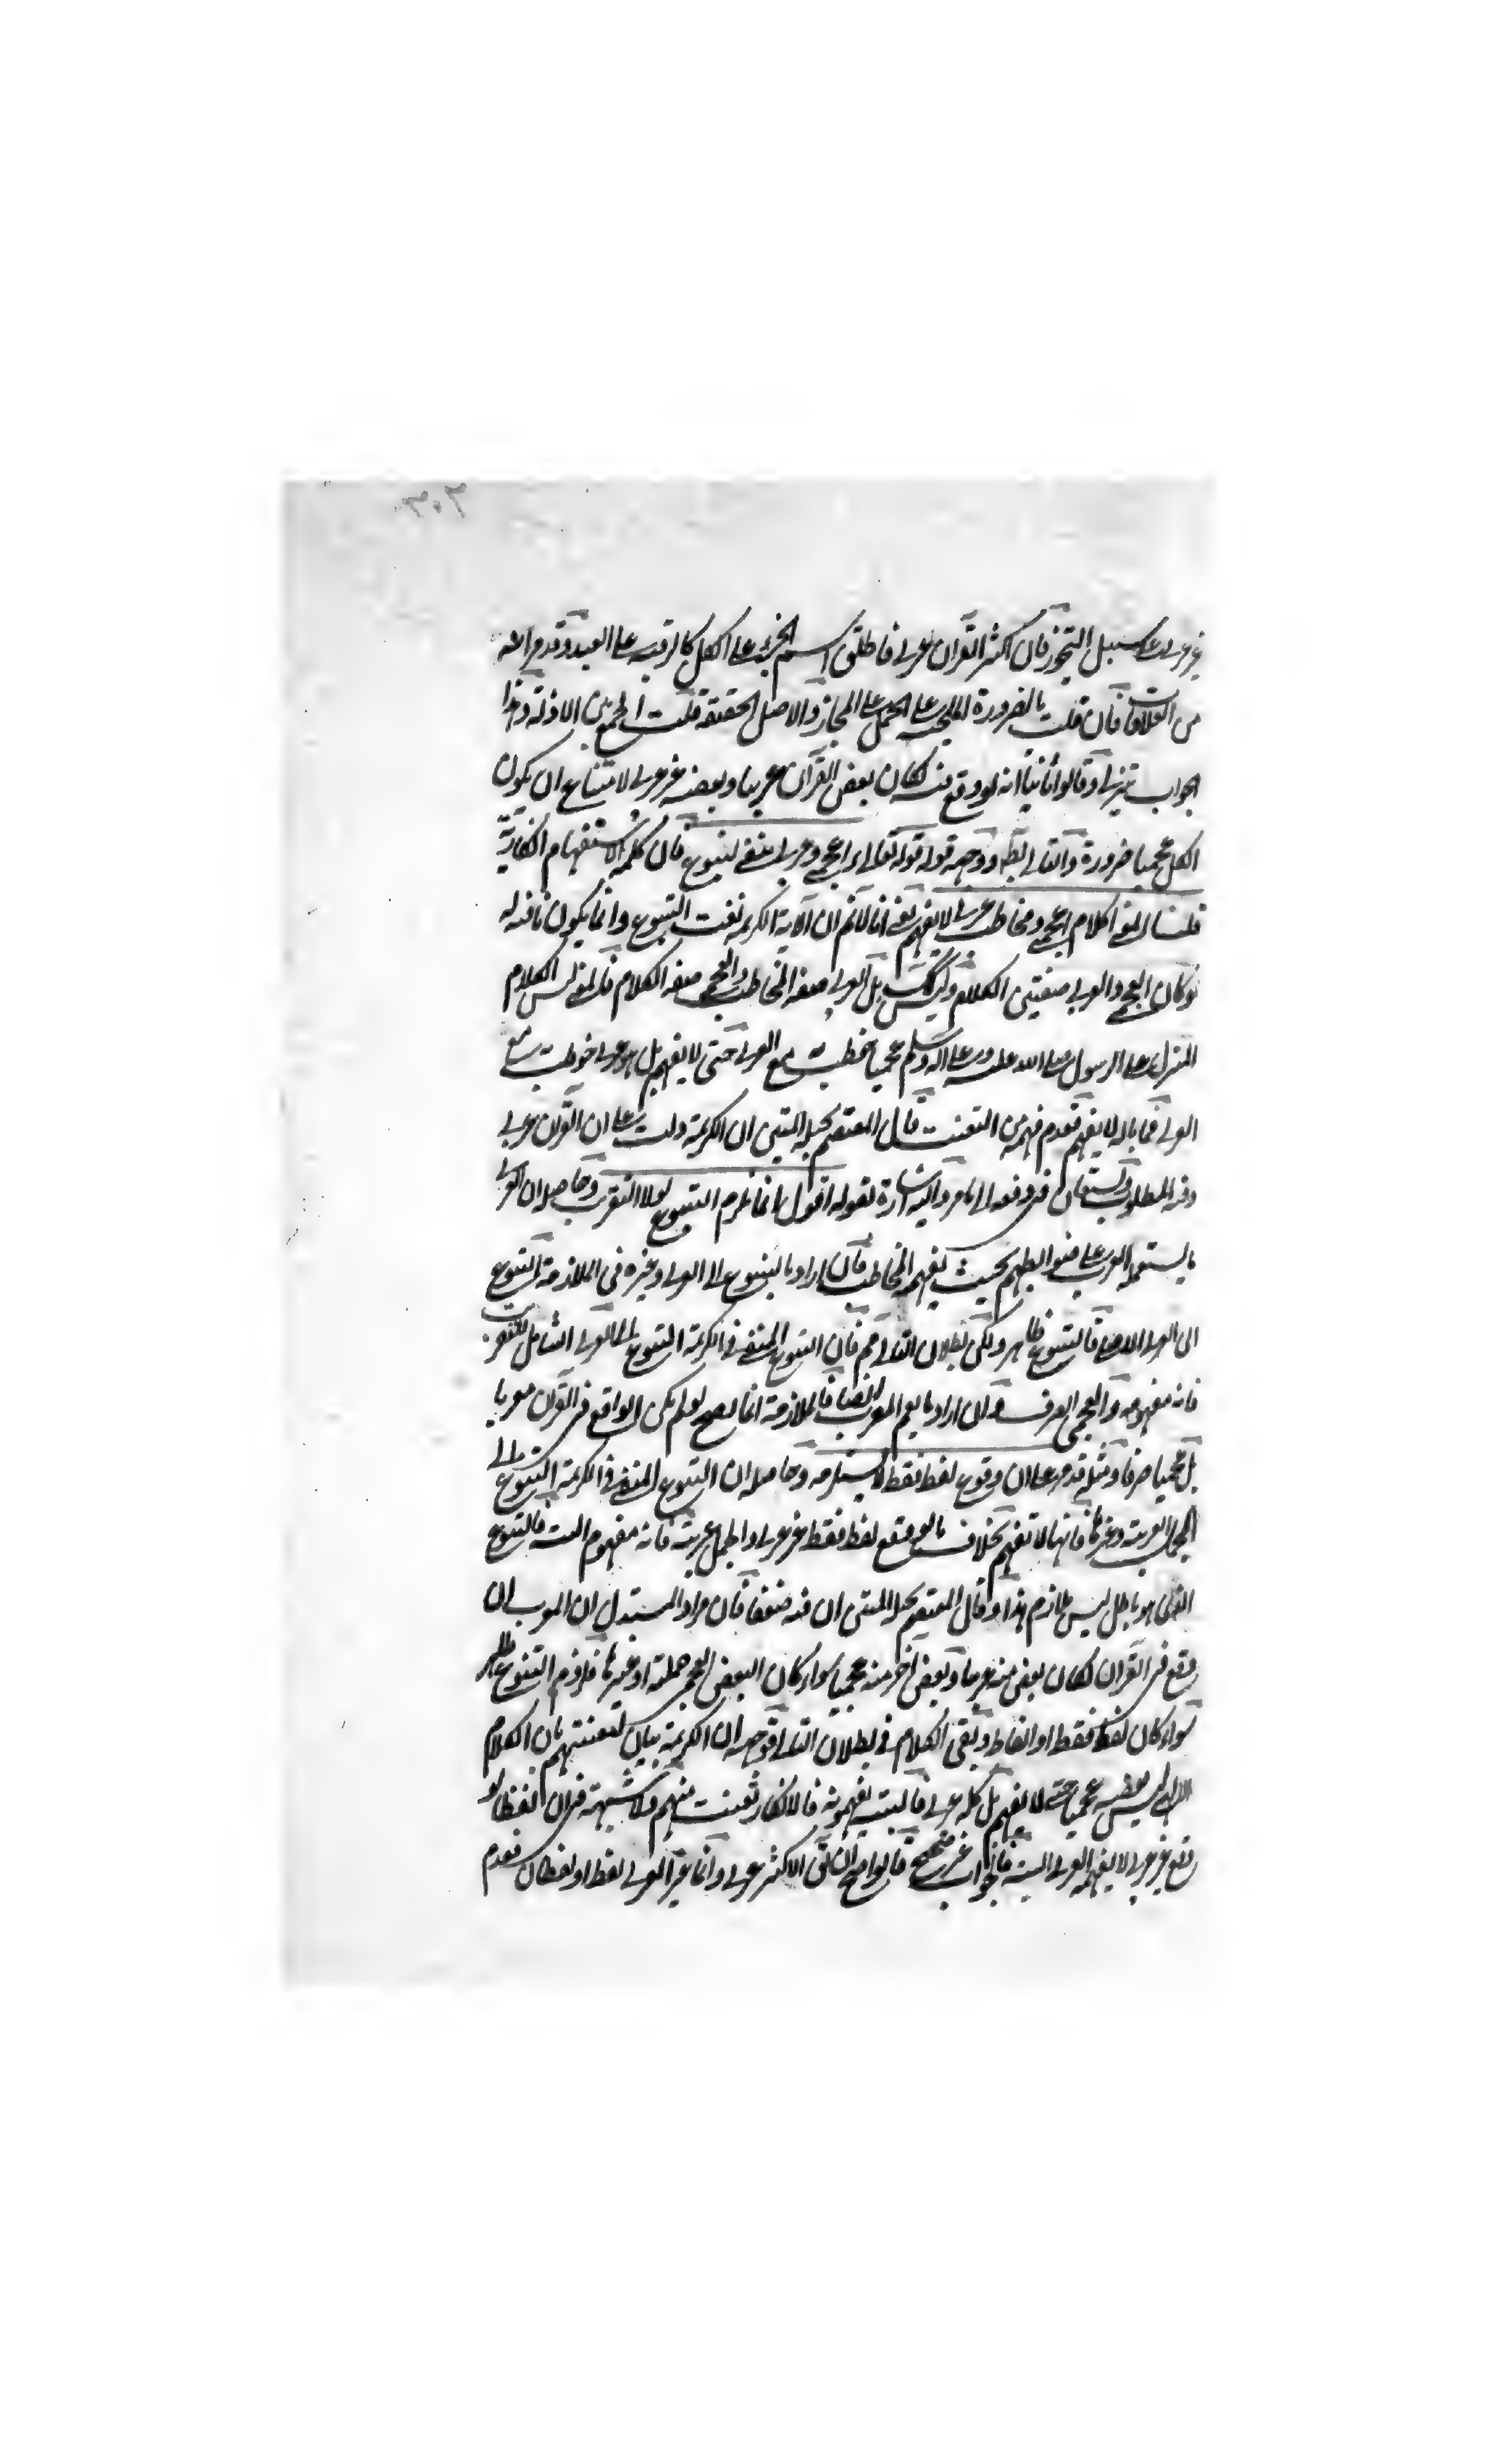 ٣٠٣
غير عربي على سبيل التجوز فان اكثر القران عربي فاطلق اسم الجزء على الكل كالرقبة على العبد وقد مر
من العلاقات فان قلت بالضرورة الملجئة على الحمل على المجاز والاصل الحقيقة قلت الجمع بين الادلة وهذا
جواب تنزلي وقالوا ثانيا انه لو وقع فيه لكان بعض القران عربيا وبعضه غير عربي لامتناع ان يكون
الكل عجميا ضرورة والتالي بط ووجهه قوله تعالى ءاعجمي وعربي ينفي لتنوع فان كلمة الاستفهام انكارية
قلنا المعنى اكلام اعجمي ومخاطب عربي لا يفهم يعني انا لا نم ان الاية الكريمة نفت التنوع وانما يكون نافية له
لو كان العجمي والعربي صفتين للكلام وليس كك بل العربي صفة المخاطب والعجمي صفة الكلام فالمعنى ليس الكلام
المنزل على الرسول صلى الله عليه وعلى اله وسلم عجميا خطب به مع العربي حتى لا يفهم بل هو عربي خوطب به مع
العربي فما باله لا يفهم فعدم فهم من التعنت قال المعتصم بحبله المتين ان الكريمة دلت على ان القران عربي
وفيه المطلوب في دفعه الى ما مر واليه اشارة بقوله اقول انما يلزم التنوع لولا التعريب وحاصله ان العربي
ما يستعمله العرب على ضوابطهم بحيث يفهمه المخاطب فان اراد بالتنوع الى العربي وغيره في الملازمة التنوع
الى العربي الاصلي فالتنوع ظاهر ولكن بطلان التالي مم فان التنوع المنفي في الكريمة التنوع الى العربي الشامل للمعرب
فانه مفهومه والعجمي الصرف وان اراد ما يعم المعرب ايضا فالملازمة انما يصح لو لم يكن الواقع في القران معربا
بل عجميا صرفا ومثله قد مر على ان وقوع لفظ فقط لا يستلزمه وحاصله ان التنوع المنفي في الكريمة التنوع الى
الجمل العربية وغيرها فانها لا تفهم بخلاف ما لو وقع لفظ فقط غير عربي والجمل عربية فانه مفهوم البتة فالتنوع
الذي هو باطل ليس بلازم هذا وقال المعتصم بحبله المتين ان فيه ضعفا فان مراد المستدل ان المعرب ان
وقع في القران لكان بعض منه عربيا وبعض اخر منه عجميا سواء كان البعض العجمي جملة او غيرها فلزوم التنوع ظاهر
سواء كان لفظ فقط او الفاظ وبقى الكلام في بطلان التالي فوجهه ان الكريمة بيان لتعنتهم بان الكلام
الالهي ليس بعضه عجميا حتى لا يفهم بل كله عربي فالبتة يفهمونه فالانكار تعنت منهم ولا شبهة في ان لفظا لو
وقع غير عربي لا يفهمه العربي البتة فالجواب غير صحيح فالواضح ان الاكثر عربي وانما غير العربي لفظ او لفظان فعدم